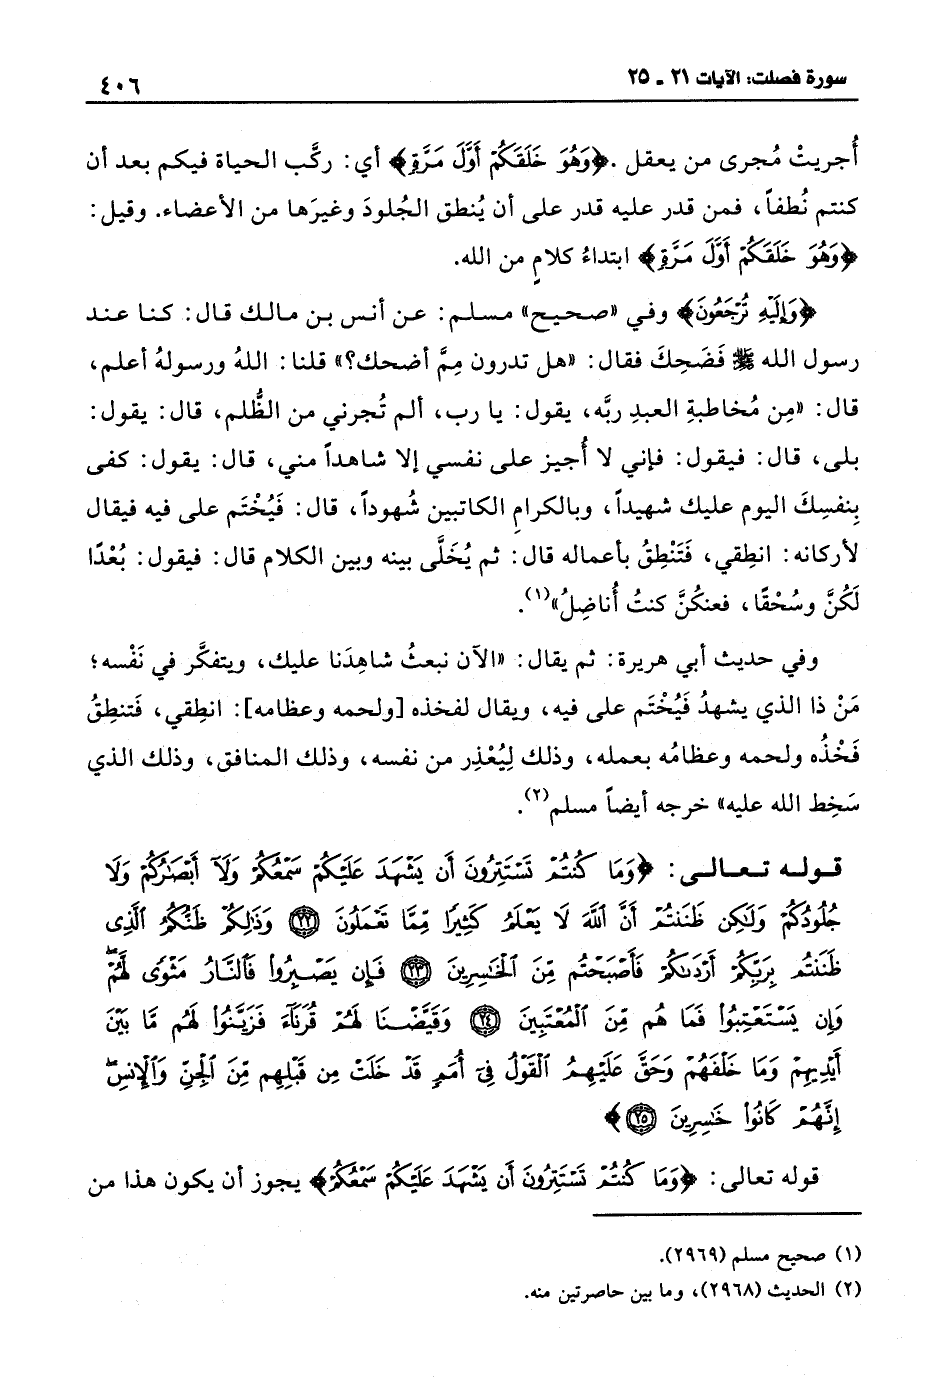 سورة فصلت: الآيات ٢١ - ٢٥
٤٠٦
أُجريتْ مُجرى من يعقل. ﴿وَهُوَ خَلَقَكُمْ أَوَّلَ مَرَّةٍ﴾ أي: ركَّب الحياة فيكم بعد أن
كنتم نُطفاً، فمن قدر عليه قدر على أن يُنطق الجُلودَ وغيرَها من الأعضاء. وقيل:
﴿وَهُوَ خَلَقَكُمْ أَوَّلَ مَرَّةٍ﴾ ابتداءُ كلامٍ من الله.
﴿وَإِلَيْهِ تُرْجَعُونَ﴾ وفي «صحيح» مسلم: عن أنس بن مالك قال: كنا عند
رسول الله ﷺ فَضَحِكَ فقال: «هل تدرون مِمَّ أضحك؟» قلنا: اللهُ ورسولهُ أعلم،
قال: «مِن مُخاطبةِ العبدِ ربَّه، يقول: يا رب، ألم تُجرني من الظُّلم، قال: يقول:
بلى، قال: فيقول: فإني لا أُجيز على نفسي إلا شاهداً مني، قال: يقول: كفى
بِنفسِكَ اليوم عليك شهيداً، وبالكرامِ الكاتبين شُهوداً، قال: فَيُخْتَم على فيه فيقال
لأركانه: انطِقي، فَتَنْطِقُ بأعماله قال: ثم يُخَلَّى بينه وبين الكلام قال: فيقول: بُعْدًا
لَكُنَّ وسُحْقًا، فعنكُنَّ كنتُ أُناضِلُ»(١).
وفي حديث أبي هريرة: ثم يقال: «الآن نبعثُ شاهِدَنا عليك، ويتفكَّر في نَفْسه؛
مَنْ ذا الذي يشهدُ فَيُخْتَم على فيه، ويقال لفخذه [ولحمه وعظامه]: انطِقي، فَتنطِقُ
فَخْذُه ولحمه وعظامُه بعمله، وذلك لِيُعْذِر من نفسه، وذلك المنافق، وذلك الذي
سَخِط الله عليه» خرجه أيضاً مسلم(٢).
قوله تعالى: ﴿وَمَا كُنتُمْ تَسْتَتِرُونَ أَن يَشْهَدَ عَلَيْكُمْ سَمْعُكُمْ وَلَآ أَبْصَٰرُكُمْ وَلَا
جُلُودُكُمْ وَلَٰكِن ظَنَنتُمْ أَنَّ ٱللَّهَ لَا يَعْلَمُ كَثِيرًا مِّمَّا تَعْمَلُونَ ٢٢ وَذَٰلِكُمْ ظَنُّكُمُ ٱلَّذِى
ظَنَنتُم بِرَبِّكُمْ أَرْدَىٰكُمْ فَأَصْبَحْتُم مِّنَ ٱلْخَٰسِرِينَ ٢٣ فَإِن يَصْبِرُوا۟ فَٱلنَّارُ مَثْوًى لَّهُمْ ۖ
وَإِن يَسْتَعْتِبُوا۟ فَمَا هُم مِّنَ ٱلْمُعْتَبِينَ ٢٤ وَقَيَّضْنَا لَهُمْ قُرَنَآءَ فَزَيَّنُوا۟ لَهُم مَّا بَيْنَ
أَيْدِيهِمْ وَمَا خَلْفَهُمْ وَحَقَّ عَلَيْهِمُ ٱلْقَوْلُ فِىٓ أُمَمٍ قَدْ خَلَتْ مِن قَبْلِهِم مِّنَ ٱلْجِنِّ وَٱلْإِنسِ ۖ
إِنَّهُمْ كَانُوا۟ خَٰسِرِينَ ٢٥﴾
قوله تعالى: ﴿وَمَا كُنتُمْ تَسْتَتِرُونَ أَن يَشْهَدَ عَلَيْكُمْ سَمْعُكُمْ﴾ يجوز أن يكون هذا من
(١) صحيح مسلم (٢٩٦٩).
(٢) الحديث (٢٩٦٨)، وما بين حاصرتين منه.